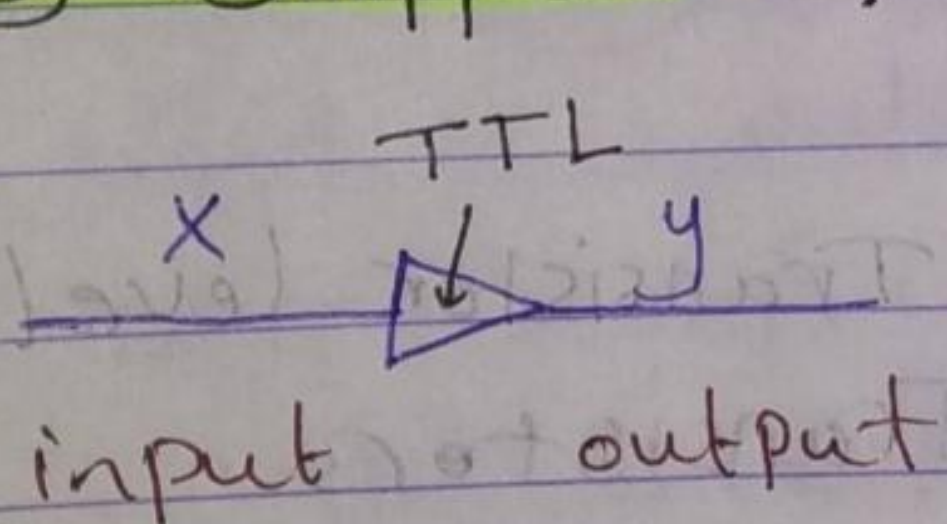 TTL
x y
input output